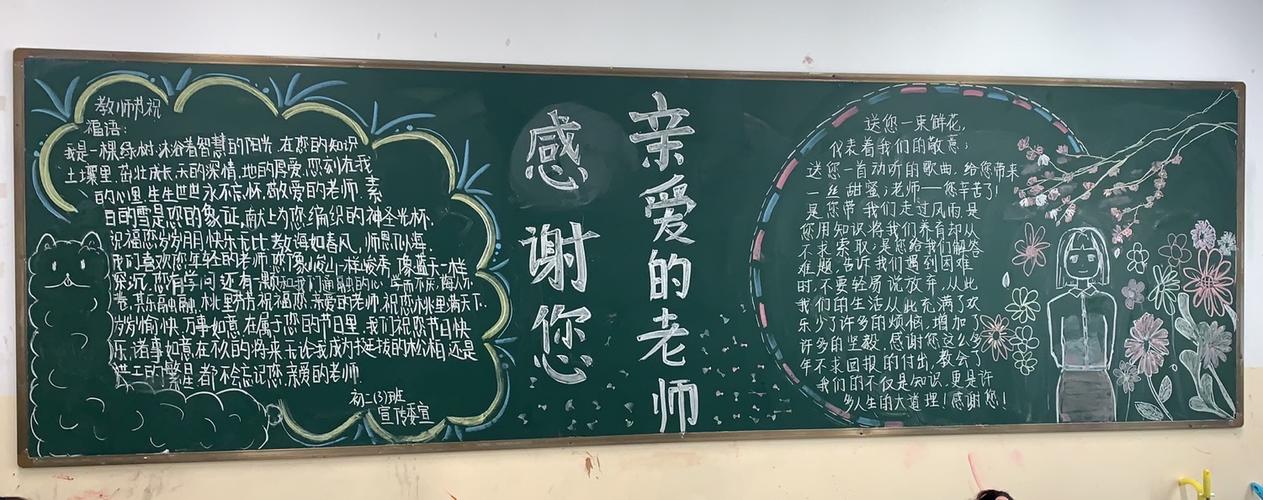 教师节祝
福语:
我是一棵绿树,沐浴着智慧的阳光,在您的知识
土壤里,茁壮成长,天的深情,地的厚爱,您刻在我
的心里,生生世世永不忘怀,敬爱的老师,素
日的雪是您的象征,献上为您编织的神圣光杯,
祝福您岁岁月月快乐无比,教诲如春风,师恩似海,
我们喜欢您年轻的老师,您像山一样峻秀,像蓝天一样
深沉,您有学问,还有一颗和我们融融的心,学而不厌,诲人不
卷,其乐融融,桃李情,祝福您,亲爱的老师,祝您桃李满天下,
岁岁愉快,万事如意,在属于您的节日里,我们祝您节日快
乐,诸事如意,在以的将来,无论我成为挺拔的松柏,还是
的繁星,都不会忘记您,亲爱的老师
初二(3)班
宣传委宣
感谢您
亲爱的老师
送您一束鲜花,
代表着我们的敬意;
送您一首动听的歌曲,给您带来
一丝甜蜜;老师——您辛苦了!
是您带我们走过风雨是
您用知识将我们养育却从
不求索取;是您给我们解答
难题,告诉我们遇到困难
时,不要轻易说放弃,从此
我们的生活从此充满了欢
乐少了许多的烦恼,增加了
许多的坚毅,感谢您这么多
年不求回报的付出,教会了
我们的不仅是知识,更是许
多人生的大道理!感谢您!